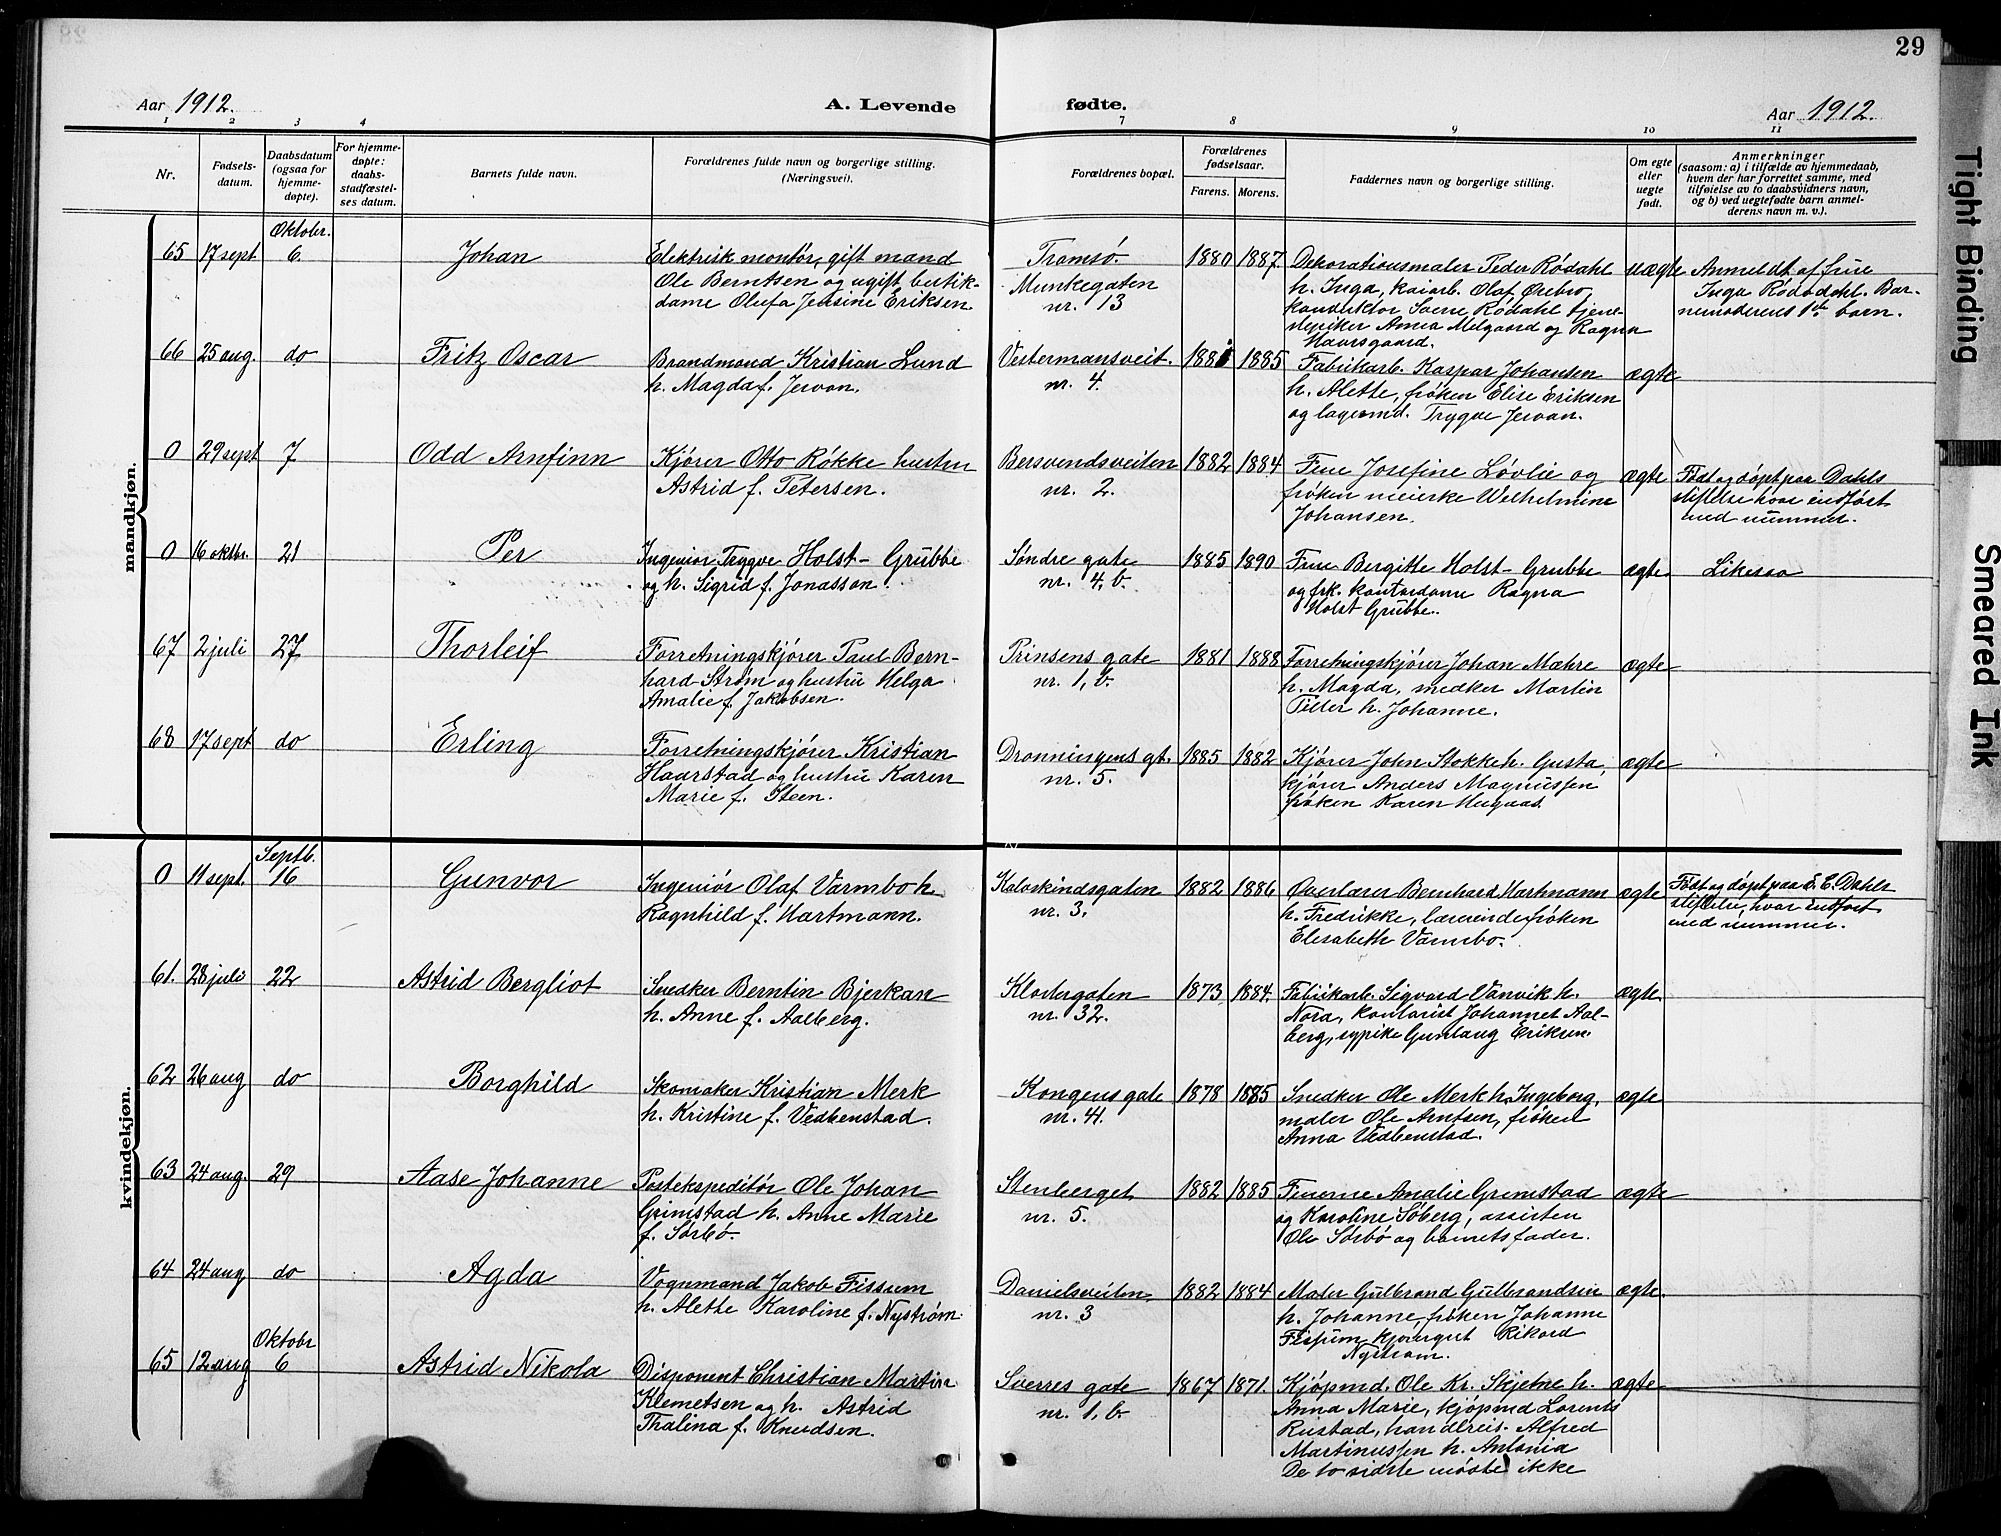 29
Aar 1912.
A. Levende fødte.
Aar 1912.
1 2 3 4 7 8 9 10 11
Nr.
Fødsels-
datum.
Daabsdatum
(ogsaa for
hjemme-
døpte).
For hjemme-
døpte:
daabs-
stadfæstel-
ses datum.
Barnets fulde navn.
Forældrenes fulde navn og borgerlige stilling.
(Næringsvei).
Forældrenes bopæl.
Forældrenes
fødselsaar.
Farens. Morens.
Faddernes navn og borgerlige stilling.
Om egte
eller
uegte
født.
Anmerkninger
(saasom: a) i tilfælde av hjemmedaab,
hvem der har forrettet samme, med
tilføielse av to daabsvidners navn,
og b) ved uegtefødte barn anmel-
derens navn m. v.).
mandkjøn.
Oktober.
65 17 sept 6. Johan
Elektrisk montør, gift mand
Ole Berntsen og ugift butik-
dame Olufa Jensine Eriksen.
Tromsø
Munkegaten
nr. 13
1880 1887
Dekorationsmaler Peder Rødahl
h. Inga, kaiarb. Olaf Ørebro,
konduktør Sverre Rødahl tjene-
stepiker Anna Melgaard og Ragna
Havrsgaard.
uægte
Anmeldt af frue
Inga Rødahl. Bar-
nemoderens 1ste barn.
66 25 aug. do Fritz Oscar
Brandmand Kristian Lund
h. Magda f. Jervan.
Vestermansveit.
nr. 4.
1885
Fabrikarb. Kaspar Johansen
h. Alette, frøken Elise Eriksen
og lagermd. Trygve Jervan.
ægte
0 29 sept 7 Odd Arnfinn
Kjører Otto Røkke hustru
Astrid f. Petersen.
Bersvendsveiten
nr. 2.
1882 1884
Frue Josefine Løvlie og
frøken meierske Wilhelmine
Johansen.
ægte
Født og døpt paa Dahls
stiftelse hvor indført
med nummer.
0 16 oktbr. 21 Per
Ingeniør Trygve Holst-Grubbe
og h. Sigrid f. Jonasson.
Søndre gate
nr. 4, b.
1885 1890
Frue Bergitte Holst-Grubbe
og frk. kontordame Ragna
Holst Grubbe.
ægte
Likesaa
67 2 juli 27 Thorleif
Forretningskjører Paul Bern-
hard Strøm og hustru Helga
Amalie f. Jakobsen.
Prinsens gate
nr. 1, b.
1881 1888
Forretningskjører Johan Mæhre
h. Magda, snedker Martin
Tiller h. Johanne.
ægte
68 17 sept do Erling
Forretningskjører Kristian
Haarstad og hustru Karen
Marie f. Steen.
Dronningens gt.
nr. 5.
1885 1882
Kjører John Stokke h. Gusta,
kjører Anders Magnussen
frøken Karen Hugaas
ægte
kvindekjøn.
Septb.
0 11 sept. 16 Gunvor
Ingeniør Olaf Varmbo h
Ragnhild f. Hartmann.
Kalvskindsgaten
nr. 3.
1882 1886
Overlærer Bernhard Hartmann
h. Fredrikke, lærerinde frøken
Elisabeth Varmbo.
ægte
Født og døpt paa E. C. Dahls
stiftelse, hvor indført
med nummer.
61. 28 juli 22 Astrid Bergliot
Snedker Berntin Bjerkan
h. Anne f. Aalberg.
Klostergaten
nr. 32.
1873 1884.
Fabrikarb. Sigvard Vanvik h.
Nora, kontorist Johannes Aal-
berg, sypike Gunlaug Eriksen.
ægte.
62 26 aug do Borghild
Skomaker Kristian Merk
h. Kristine f. Vedbenstad.
Kongens gate
nr. 41.
1878 1885
Snedker Ole Merk h. Ingeborg,
maler Ole Arntsen, frøken
Anna Vedbenstad.
ægte
63 24 aug. 29 Aase Johanne
Postekspeditør Ole Johan
Grimstad h. Anne Marie
f. Sørbø.
Stenberget
nr. 5.
1882 1885
Fruerne Amalie Grimstad
og Karoline Søberg, assisten
Ole Sørbø og barnets fader.
ægte
64 24 aug do Agda
Vognmand Jakob Fissum
h. Alette Karoline f. Nystrøm.
Danielsveiten
nr. 3
1882 1884
Maler Gulbrand Gulbrandsen
h. Johanne, frøken Johanne
Fissum, kjøregut Rikard
Nystrøm.
ægte.
Oktobr
65 12 aug 6 Astrid Nikola
Disponent Christian Martin
Klemetsen og h. Astrid
Thalina f. Knudsen.
Sverres gate
nr. 1, b
1867 1871.
Kjøpmd. Ole Kr. Skjetne h.
Anna Marie, kjøpmd Lorents
Rustad, handelsreis. Alfred
Martinussen h. Antonia
De to sidste møtte ikke
ægte
Tight Binding
Smeared Ink